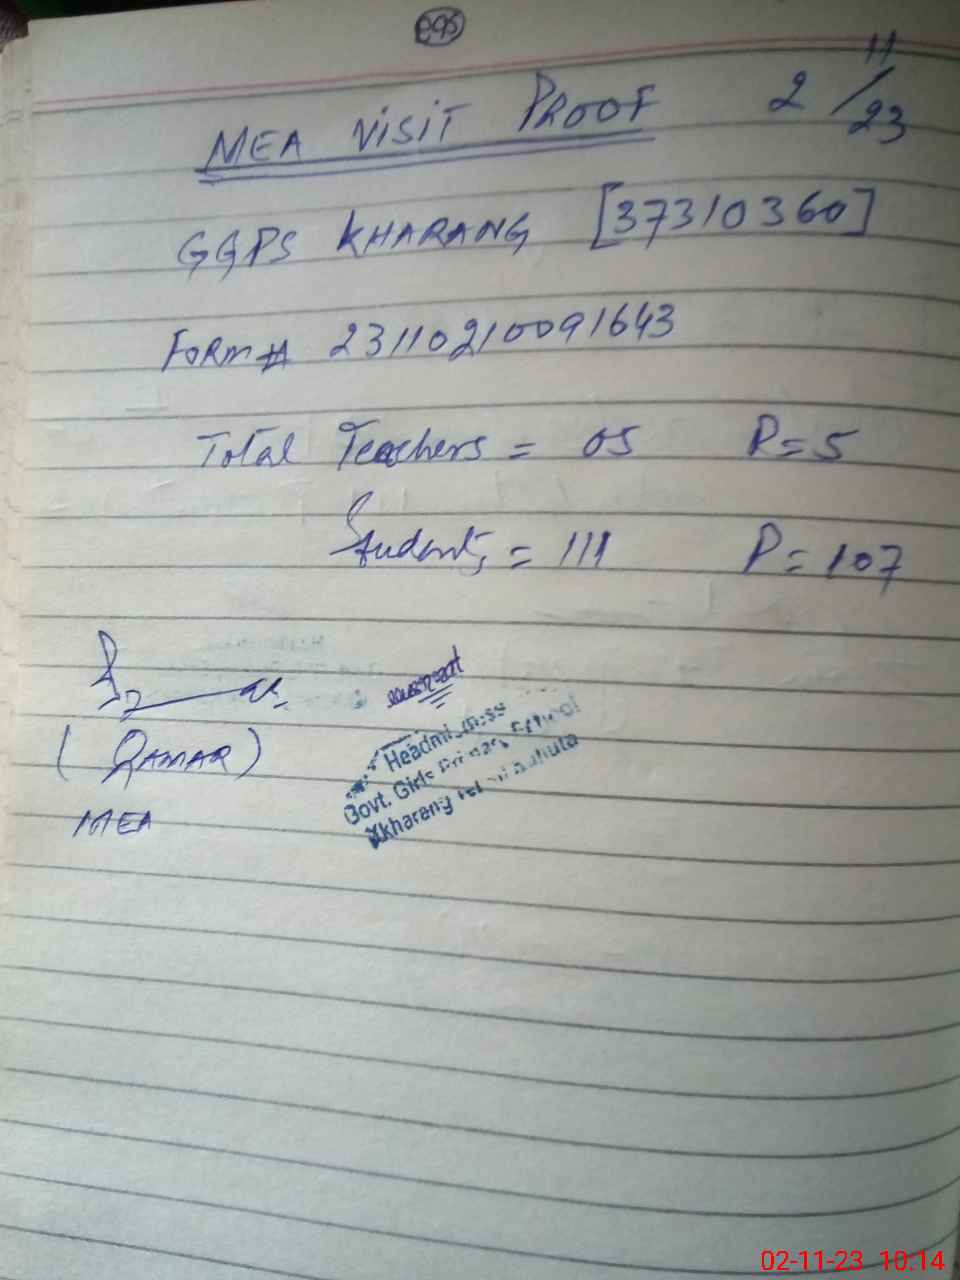 MEA VISIT PROOF 2/11/23
GGPS KHARANG [37310360]
FORM # 23110210091643
Total Teachers = 05 P=5
Students = 111 P=107
(QAMAR)
MEA
Headmistress
Govt. Girls Primary School
Kharang
02-11-23 10:14